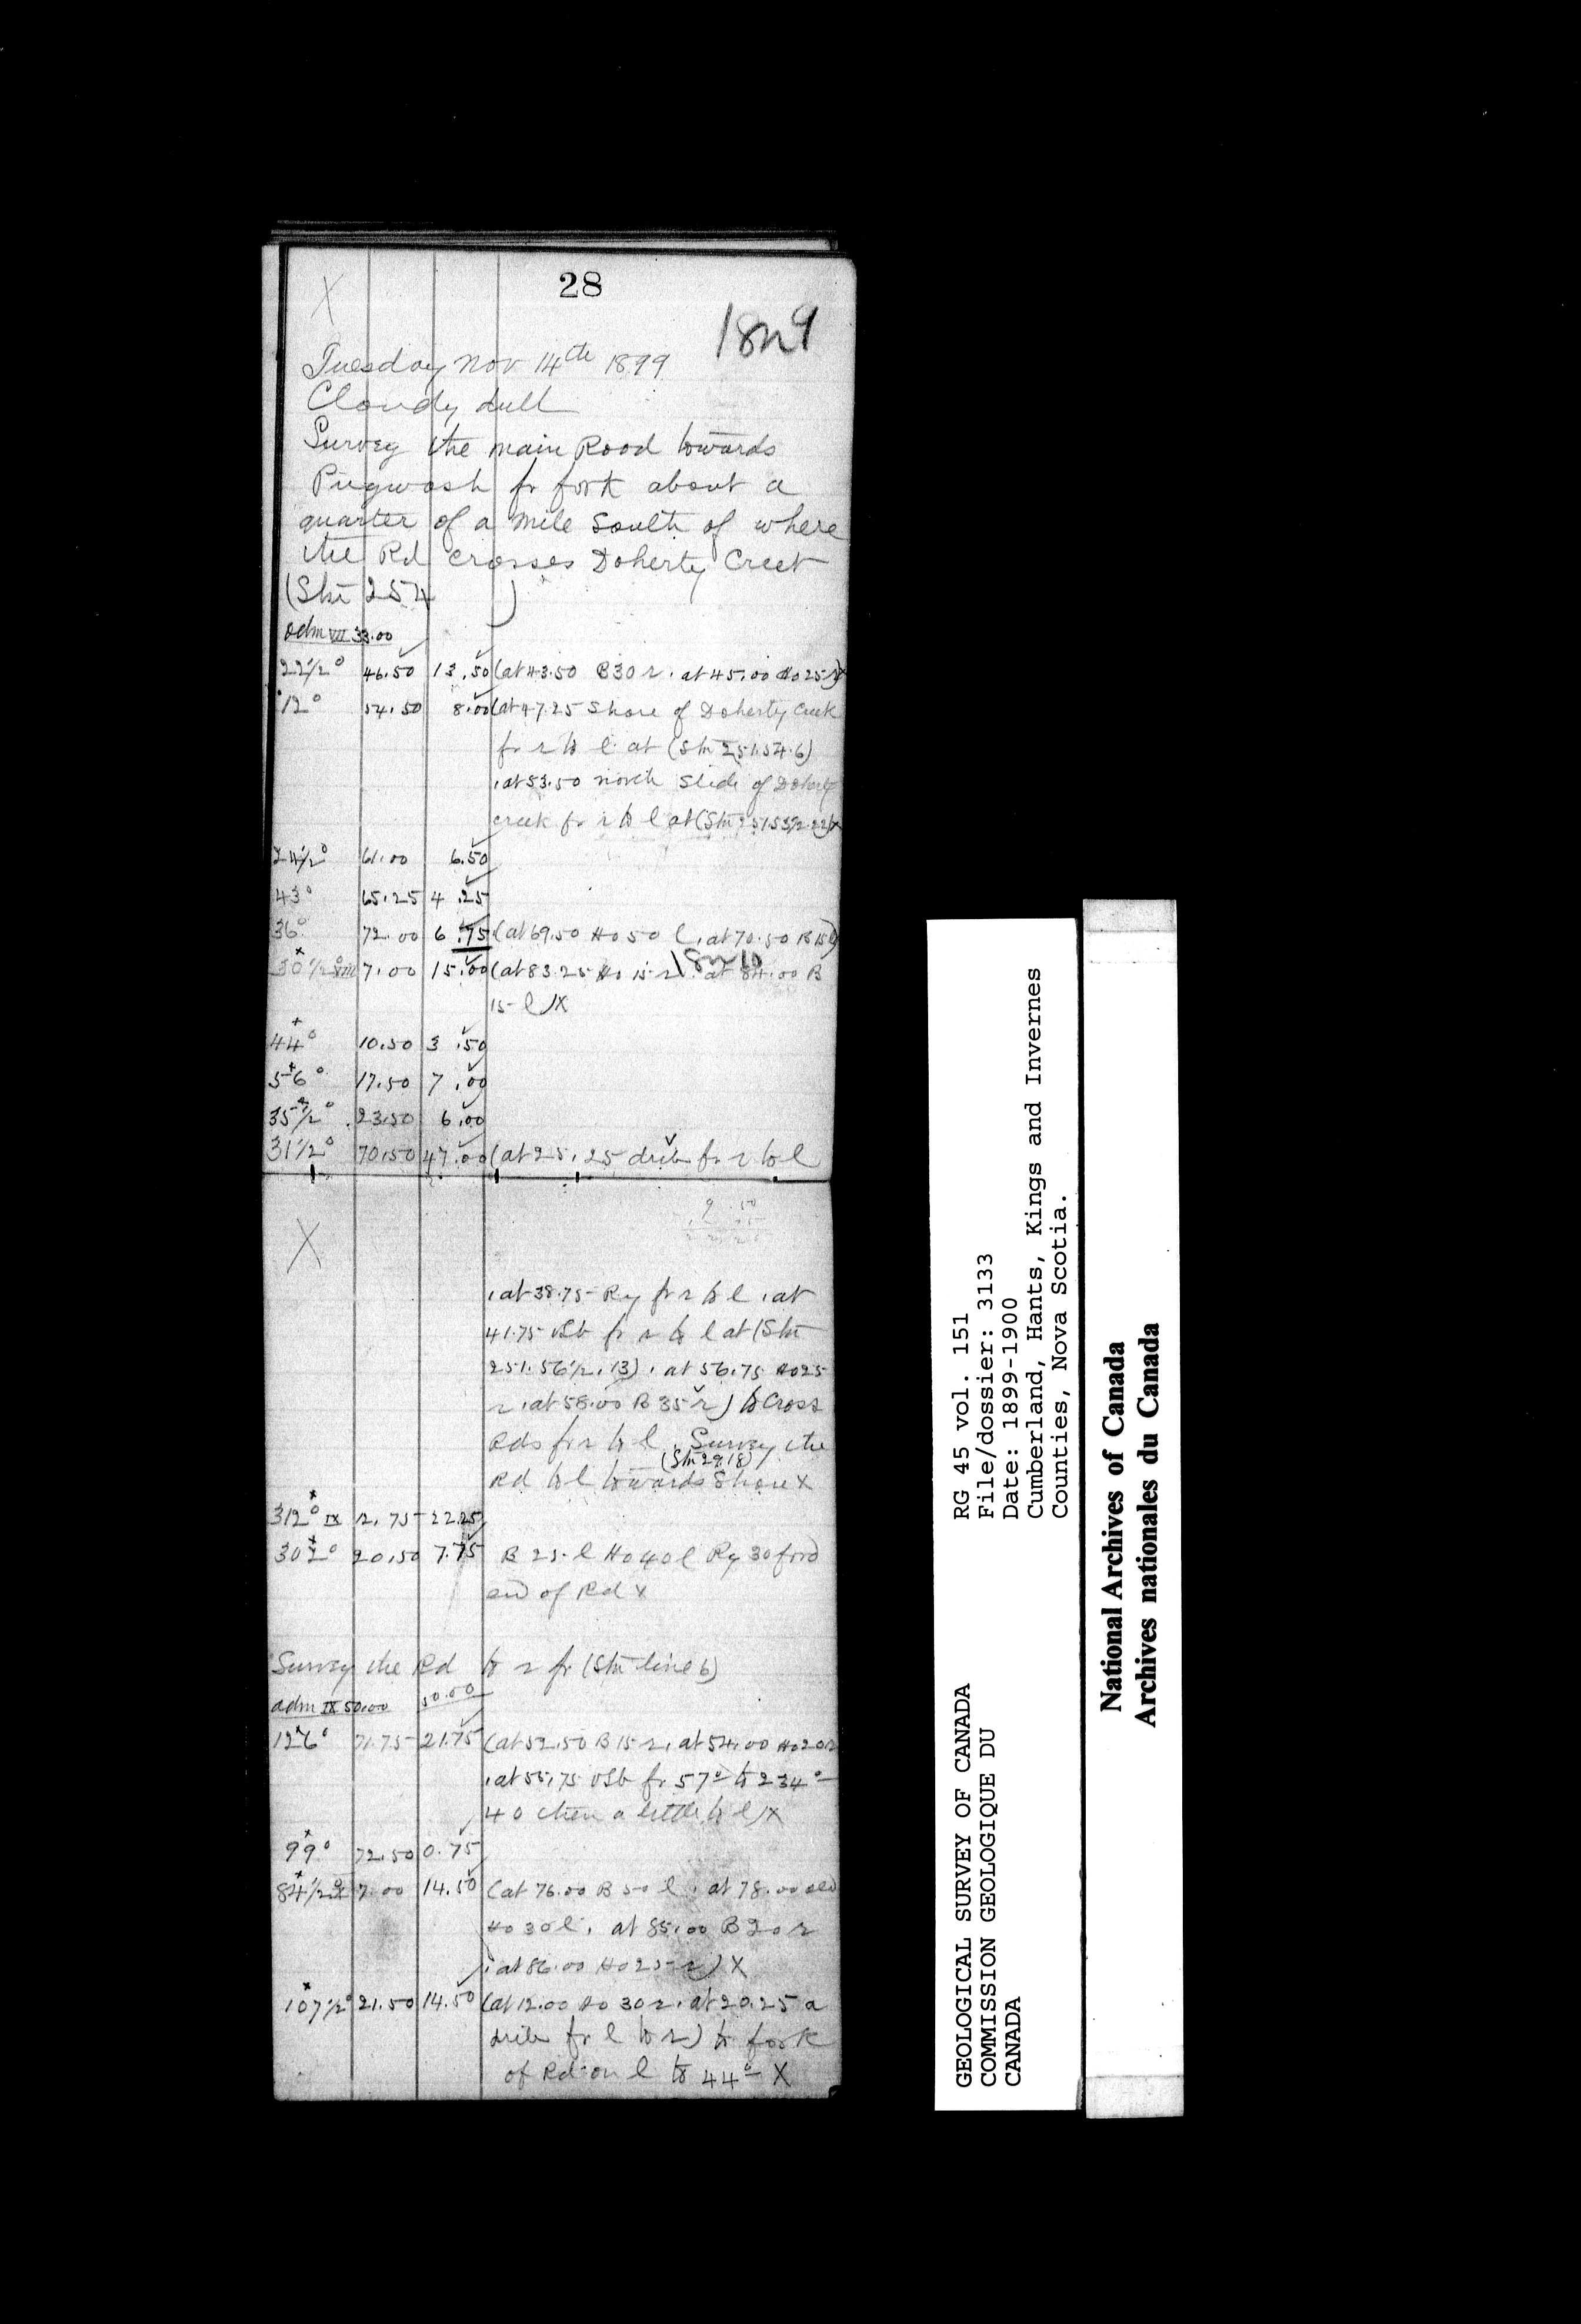 28
18n9
Tuesday Nov 14th 1899
Cloudy dull
Survey the main Road towards
Pugwash fr fork about a
quarter of a mile South of where
the Rd crosses Doherty Creek
(Stn 254 )
odm VII 33.00
22 1/2° 46.50 13.50 (at 43.50 B 30 r. at 45.00 Ho 25 r)x
12° 54.50 8.00 (at 47.25 Shore of Doherty Creek
fr r to l at (Stn 251.54.6)
, at 53.50 north Side of Doherty
creek fr r to l at (Stn 251.53 1/2.22)x
24 1/2° 61.00 6.50
43° 65.25 4.25
36° 72.00 6.75 (at 69.50 Ho 50 l, at 70.50 B 15 l)
18n10
30 1/2° VIII 7.00 15.00 (at 83.25 Ho 15 r. at 84.00 B
15 l)x
44° 10.50 3.50
56° 17.50 7.00
35 1/2° 23.50 6.00
31 1/2° 70.50 47.00 (at 25.25 drib fr r to l
X
, at 38.75 Ry fr r to l , at
41.75 vSb fr r to l at (Stn
251.56 1/2.13) , at 56.75 Ho 25
r , at 58.00 B 35 r) to Cross
Rds fr r to l . Survey the
(Stn 29.18)
Rd to l towards Shore X
312° IX 12.75 22.25
302° 20.50 7.75 B 25 l Ho 40 l Ry 30 ford
end of Rd x
Survey the Rd to r fr (Stn line 6)
odm IX 50.00 50.00
126° 71.75 21.75 (at 52.50 B 15 r, at 54.00 Ho 20 r
, at 55.75 vSb fr 57° to 234°
40 then a little to l)x
99° 72.50 0.75
84 1/2° X 7.00 14.50 (at 76.00 B 50 l . at 78.00 old
Ho 30 l , at 85.00 B 20 r
, at 86.00 Ho 25 r) X
107 1/2° 21.50 14.50 (at 12.00 Ho 30 r, at 20.25 a
drib fr l to r) to fork
of Rd on l to 44° X
GEOLOGICAL SURVEY OF CANADA
COMMISSION GEOLOGIQUE DU
CANADA
RG 45 vol. 151
File/dossier: 3133
Date: 1899-1900
Cumberland, Hants, Kings and Invernes
Counties, Nova Scotia.
National Archives of Canada
Archives nationales du Canada